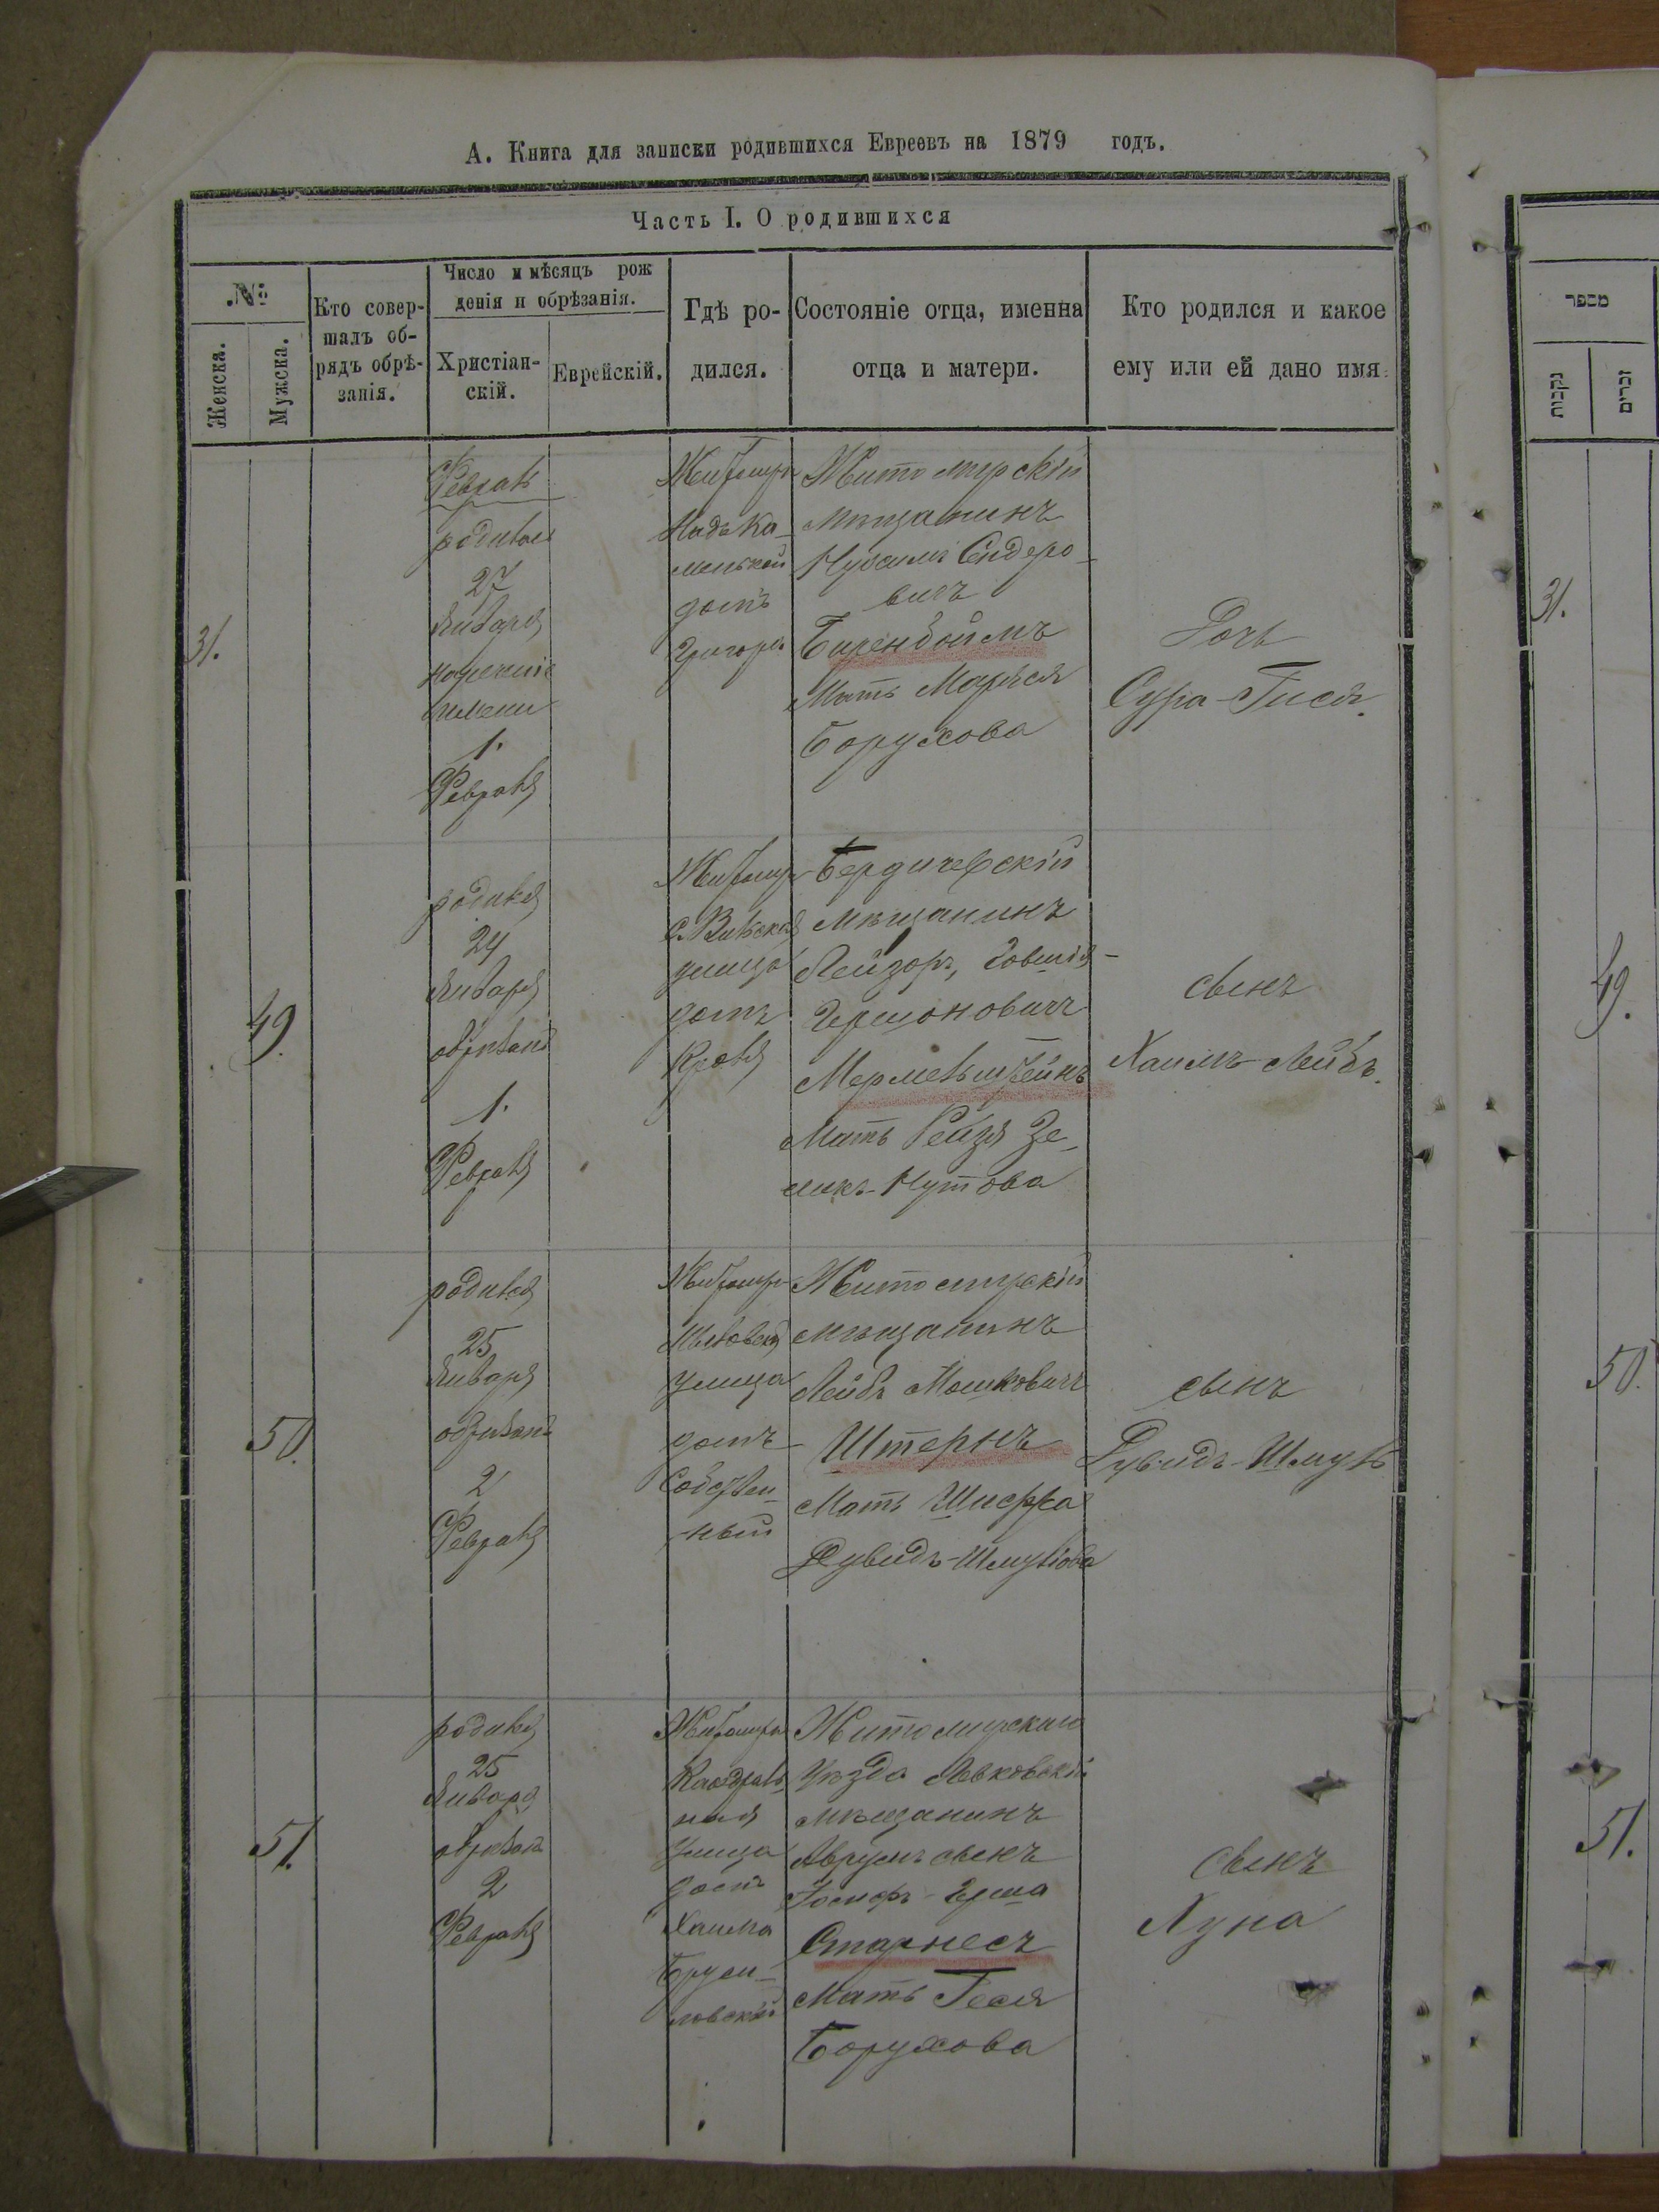 А. Книга для записки родившихся Евреевъ на 1879 годъ.
Часть I. О родившихся
№
Женска.
Мужска.
Кто совер-
шалъ об-
рядъ обрѣ-
занія.
Число и мѣсяцъ рож
денія и обрѣзанія.
Христіан-
скій.
Еврейскій.
Гдѣ ро-
дился.
Состояніе отца, именна
отца и матери.
Кто родился и какое
ему или ей дано имя.
מספר
נקבות
זכרים
31.
Февраль
родилась
27
Января
нареченіе
имени
1.
Февраля
Житомиръ
домъ
Житомирскій
мѣщанинъ
Нухимъ Сендеро-
вичъ
Биренбоймъ
Мать Марьяся
Борухова
Дочь
Сура-Гися.
31.
49.
родился
24
Января
обрѣзанъ
1.
Февраля
Житомиръ
улица
домъ
Кроля
Бердичевскій
мѣщанинъ
Лейзоръ, Говшія-
Гершоновичъ
Мермельштейнъ
Мать Рейзя Зе-
ликъ-Нутова
сынъ
Хаимъ-Лейбъ.
49.
50.
родился
25
Января
обрѣзанъ
2
Февраля
Житомиръ
улица
домъ
Собствен-
ный
Житомирскій
мѣщанинъ
Лейбъ Мошковичъ
Штернъ
Мать Шифра
Дувидъ-Шмулiова
сынъ
Дувидъ-Шмуль
50.
51.
родился
25
Января
обрѣзанъ
2
Февраля
Житомиръ
Каѳедраль-
ная
Улица
домъ
Хаима
Бруси-
ловскій
Житомирскаго
Уѣзда Левковскій
мѣщанинъ
Аврумъ сынъ
Іосифъ-Герша
Старнесъ
Мать Геся
Борухова
Сынъ
Хуна
51.